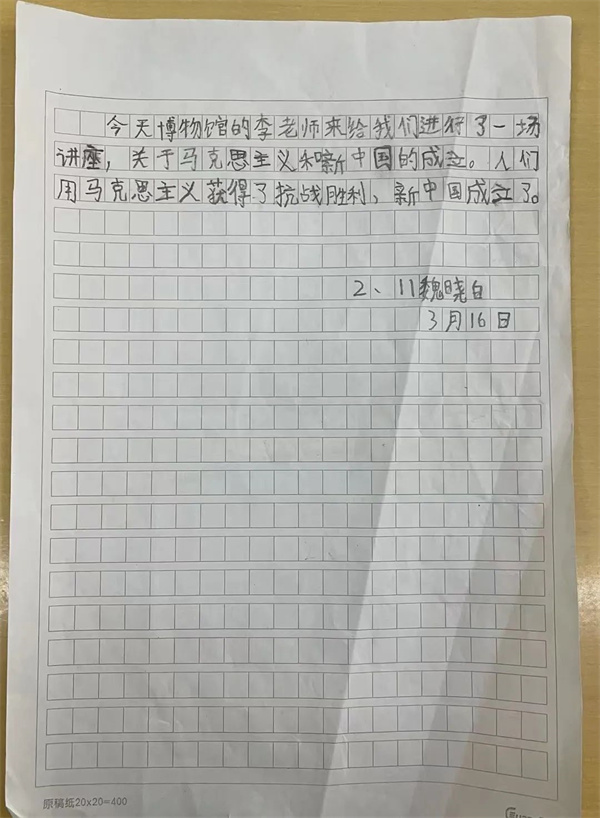 今天博物馆的李老师来给我们进行了一场
讲座，关于马克思主义和新中国的成立。人们
用马克思主义获得了抗战胜利、新中国成立了。
2、11魏晓白
3月16日
原稿纸20×20=400